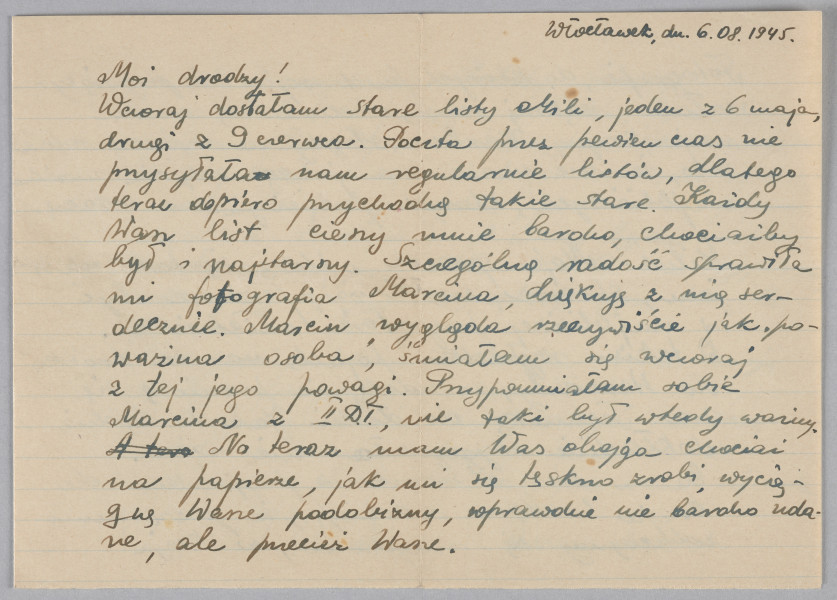 Włocławek, dn. 6.08.1945.
Moi drodzy!
Wczoraj dostałam stare listy Mili, jeden z 6 maja,
drugi z 9 czerwca. Poczta przez pewien czas nie
przysyłała nam regularnie listów, dlatego
teraz dopiero przychodzą takie stare. Każdy
Wasz list cieszy mnie bardzo, chociażby
był i najstarszy. Szczególną radość sprawiła
mi fotografia Marcina, dziękuję z nią ser-
decznie. Marcin wygląda rzeczywiście jak po-
ważna osoba, śmiałam się wczoraj
z tej jego powagi. Przypomniałam sobie
Marcina z II D.I., nie taki był wtedy ważny.
A teraz No teraz mam Was oboje chociaż
na papierze, jak mi się tęskno zrobi, wycią-
gnę Wasze podobizny, wprawdzie nie bardzo uda-
ne, ale przecież Wasze.